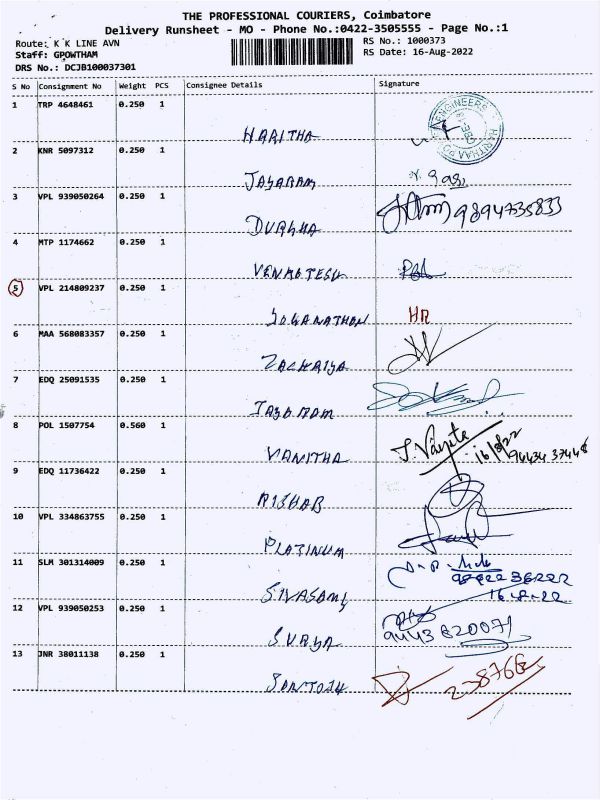 THE PROFESSIONAL COURIERS, Coimbatore
Delivery Runsheet - MO - Phone No.:0422-3505555 - Page No.:1
Route: K K LINE AVN
RS No.: 1000373
Staff: GPOWTHAM
RS Date: 16-Aug-2022
DRS No.: DCJB100037301
S No Consignment No Weight PCS Consignee Details Signature
1 TRP 4648461 0.250 1
HARITHA
ENGINEERS
2 KNR 5097312 0.250 1
JAYARAM
3 VPL 939050264 0.250 1
DURGHA 9894735833
4 MTP 1174662 0.250 1
VENKATESH
5 VPL 214809237 0.250 1
LOGANATHAN HR
6 MAA 568083357 0.250 1
ZACHRIYA
7 EDQ 25091535 0.250 1
JAYARAM
8 POL 1507754 0.560 1
VANITHA J. Vanita 16/8/22
94434 37448
9 EDQ 11736422 0.250 1
RISHAB
10 VPL 334863755 0.250 1
PLATINUM
11 SLM 301314009 0.250 1
SIVASAMY 98422 36222
16-8-22
12 VPL 939050253 0.250 1
SURYA 9443 820071
13 JNR 38011138 0.250 1
SANTOSH 238766